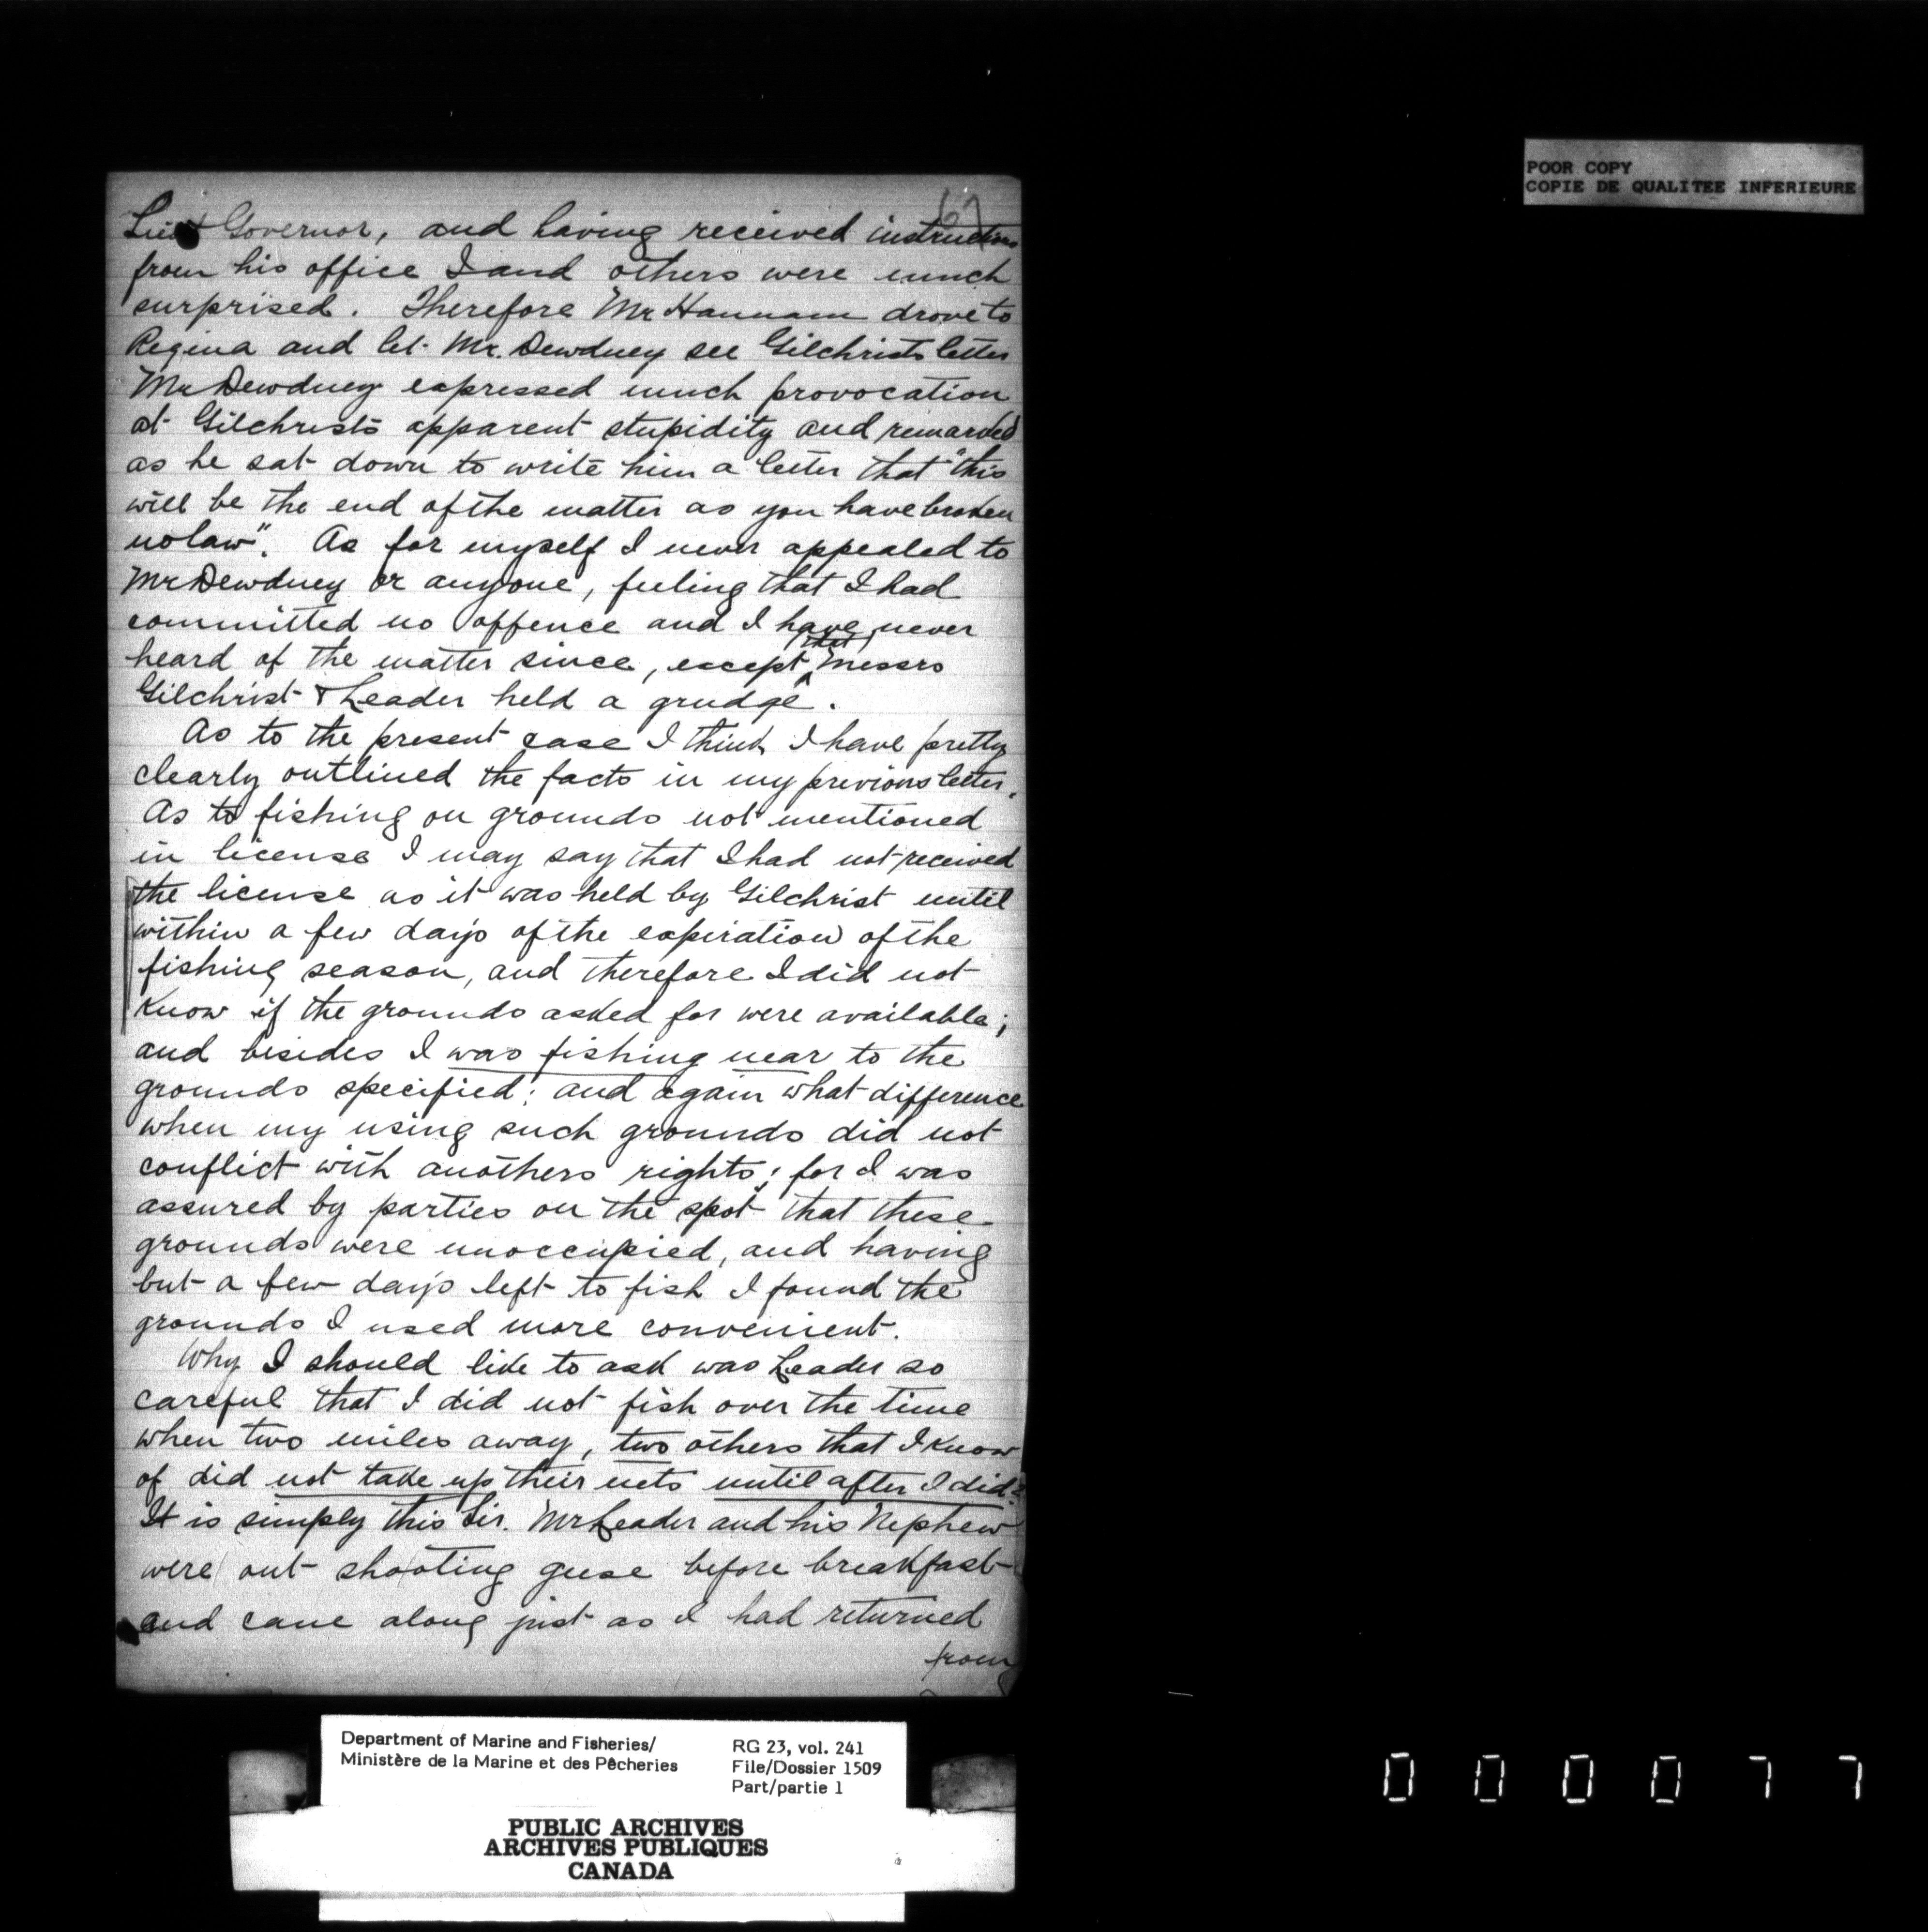 POOR COPY
COPIE DE QUALITEE INFERIEURE
67
Lieut Governor, and having received instructions
from his office I and others were much
surprised. Therefore Mr Hannam drove to
Regina and let Mr. Dewdney see Gilchrists letter
Mr Dewdney expressed much provocation
at Gilchrists apparent stupidity and remarked
as he sat down to write him a letter that "this
will be the end of the matter as you have broken
no law". As for myself I never appealed to
Mr Dewdney or anyone, feeling that I had
committed no offence and I have never
that
heard of the matter since, except ^ Messrs
Gilchrist & Leader held a grudge.
As to the present case I think I have pretty
clearly outlined the facts in my previous letter.
As to fishing on grounds not mentioned
in license I may say that I had not received
the license as it was held by Gilchrist until
within a few days of the expiration of the
fishing season, and therefore I did not
know if the grounds asked for were available;
and besides I was fishing near to the
grounds specified; and again what difference
when my using such grounds did not
conflict with anothers rights; for I was
assured by parties on the spot that these
grounds were unoccupied, and having
but a few days left to fish I found the
grounds I used more convenient.
Why I should like to ask was Leader so
careful that I did not fish over the time
when two miles away, two others that I know
of did not take up their nets until after I did?
It is simply this Sir. Mr Leader and his Nephew
were out shooting geese before breakfast
and came along just as I had returned
from
Department of Marine and Fisheries/
Ministère de la Marine et des Pêcheries
RG 23, vol. 241
File/Dossier 1509
Part/partie 1
PUBLIC ARCHIVES
ARCHIVES PUBLIQUES
CANADA
000077